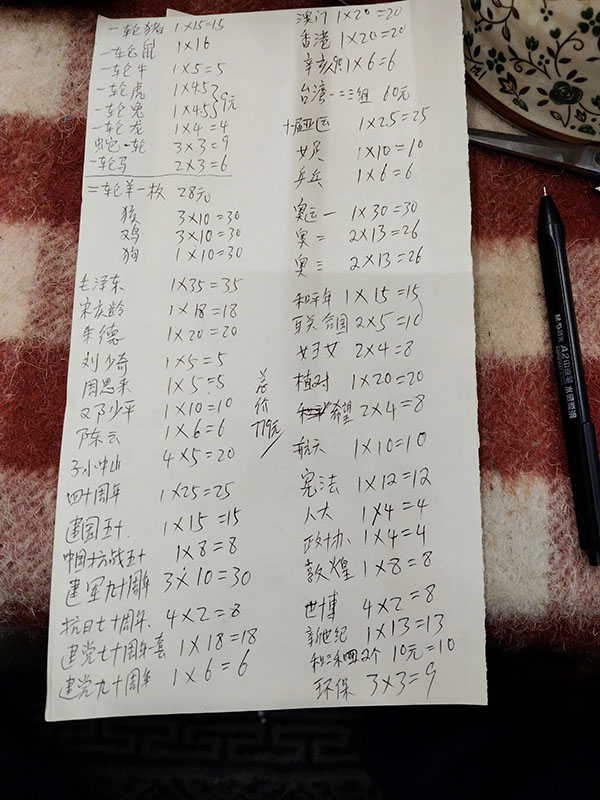 一轮猪 1×15=15
一轮鼠 1×16
一轮牛 1×5=5
一轮虎 1×45
一轮兔 1×45 9元
一轮龙 1×4=4
蛇一轮 3×3=9
一轮马 2×3=6
二轮羊一枚 28元
猴 3×10=30
鸡 3×10=30
狗 1×10=30
毛泽东 1×35=35
宋庆龄 1×18=18
朱德 1×20=20
刘少奇 1×5=5
周恩来 1×5=5
邓少平 1×10=10
陈云 1×6=6
子小中山 4×5=20
四十周年 1×25=25
建国五十 1×15=15
中国抗战五十 1×8=8
建军九十周年 3×10=30
抗日七十周年 4×2=8
建党七十周年一套 1×18=18
建党九十周年 1×6=6
总价
779元
澳门 1×20=20
香港 1×20=20
辛亥 1×6=6
台湾一二三组 60元
十一届亚运 1×25=25
女足 1×10=10
乒乓 1×6=6
奥运一 1×30=30
奥二 2×13=26
奥三 2×13=26
和平年 1×15=15
联合国 2×5=10
妇女 2×4=8
植树 1×20=20
希望 2×4=8
航天 1×10=10
宪法 1×12=12
人大 1×4=4
政协 1×4=4
敦煌 1×8=8
世博 4×2=8
新世纪 1×13=13
和三和四2个 10元=10
环保 3×3=9
M&G A2中油笔